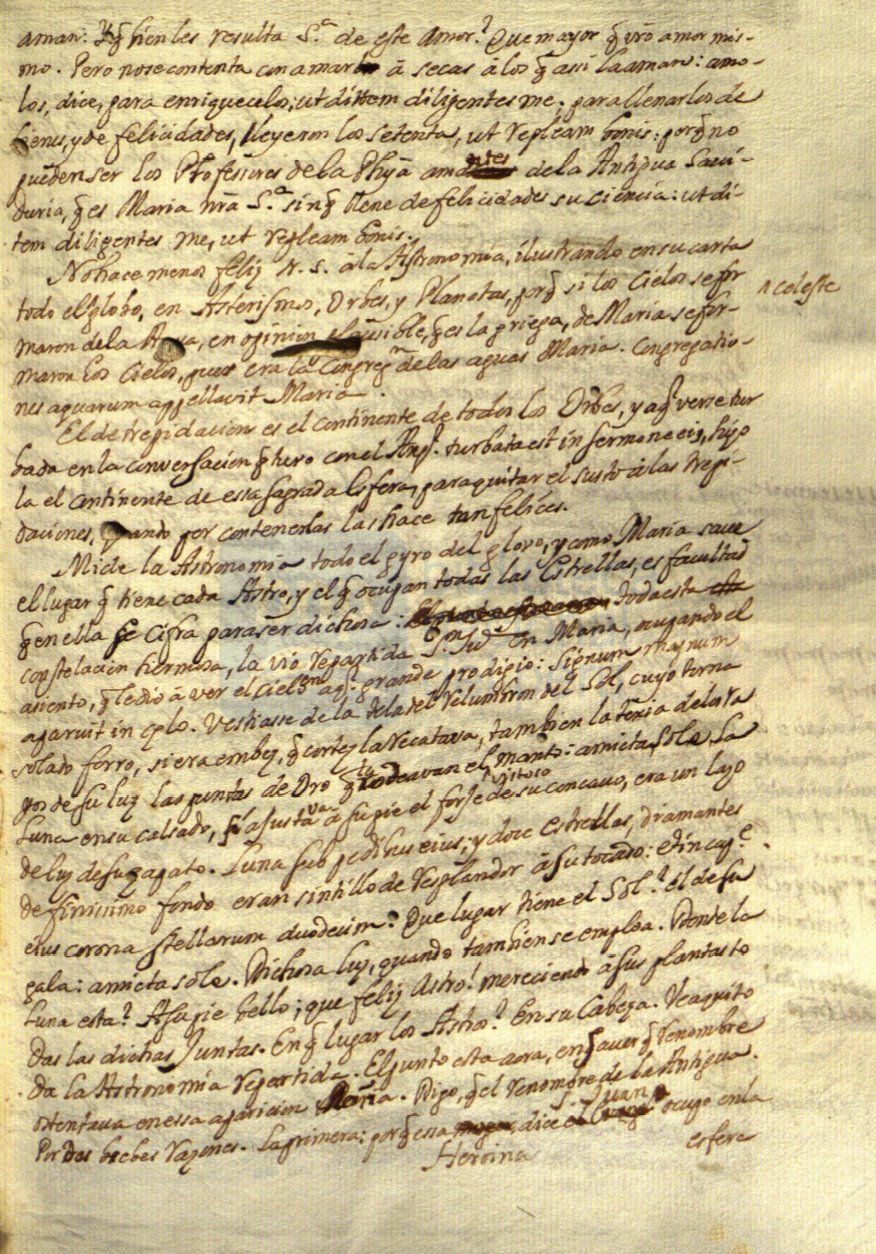 aman: Y q̃ bien les resulta S.ª de este amor? Que mayor q̃ vr̃o amor mis-
mo. Pero no se contenta con amar à secas à los q̃ assi la aman: amo-
los, dice, para enriquecelos; ut ditem diligentes me. para llenarlos de
bienes, y de felicidades, lleyeron los setenta, ut repleam bonis: porq̃ no
pueden ser los Professores de la Phỹa amantes de la Antigua Savi-
duria, q̃ es Maria nr̃a S.ª sin q̃ llene de felicidades su ciencia: ut di-
tem diligentes me, ut repleam bonis.
No hace menos feliz N. S. à la Astronomia, ilustrando en su carta
todo el globo, en Asterismos, Orbes, y Planetas, porq̃ si los Cielos se for
^ celeste
maron de la Agua, en opinion plausible, q̃ es la griega, de Maria se for-
maron los Cielos, pues era la Congreg.ⁿ de las aguas Maria. Congregatio-
nes aquarum appellavit Maria.
El de trepidacion es el continente de todos los Orbes, y aq̃l verse tur
bada en la conversacion q̃ tuvo con el Ang.l turbata est in sermone eiꝰ, hizo
la el continente de essa sagrada Esfera, para quitar el susto à las trepi-
daciones, quando por contenerlas las hace tan felices.
Mide la Astronomia todo el gyro del glovo, y como Maria save
el lugar q̃ tiene cada Astro, y el q̃ ocupan todas las Estrellas, es facultad
q̃ en ella se cifra para ser dichosa: toda esta
constelacion hermosa, la vio repartida S.ⁿ Juº en Maria, ocupando el
asiento, q̃ le dio à ver el Cielo en aq̃l grande prodigio: Signum magnum
aparuit in cęlo. Vestiasse de la tela del relumbron del Sol, cuyo torna
solado forro, si era embez, q̃ cortez la recatava, tambien la tenia de los ra
yos de su luz las puntas de Oro q̃ rodeavan el manto: amicta sole. La
Luna en su calsado, si ajustava à su pie el forje de su concavo, era un lazo
vistoso
de luz de su zapato. Luna sub pedibus eius; y doce estrellas, diamantes
de finissimo fondo eran sintillo de resplandor à su tocado: et in cap.e
eius corona stellarum duodecim. Que lugar tiene el Sol? el de su
gala: amicta sole. Dichosa luz, quando tambien se emplea. Donde la
Luna esta? A su pie bello; que feliz Astro! mereciendo à sus plantas to
das las dichas juntas. En q̃ lugar los Astros? En su Cabeza. Ve aqui to
da la Astronomia repartida. El punto esta aora, en q̃ aver q̃ renombre
ostentava en essa aparicion Maria. Digo, q̃ el renombre de la Antigua.
Por dos brebes razones. La primera: porq̃ essa dice S. Juan ocupo en la
Heroina
esfera